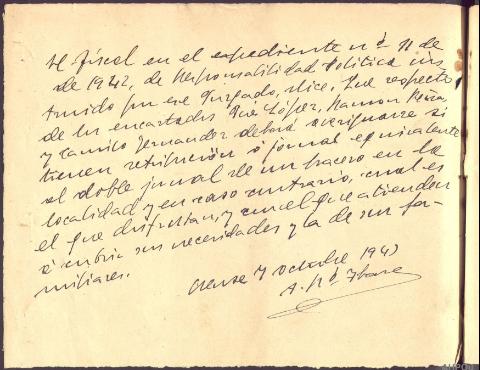 El fiscal en el expediente nº 11 de
de 1942, de Responsabilidad Política ins
truido por ese Juzgado, dice, Que respecto
de los encartados José López, Ramon
y Camilo Fernandez deberá averiguarse si
tienen retribución ó jornal equivalente
al doble jornal de un bracero en la
localidad y en caso contrario, cual es
el que disfrutan, y con el que atienden
á cubrir sus necesidades y la de sus fa-
miliares.
Orense 7 octubre 1943